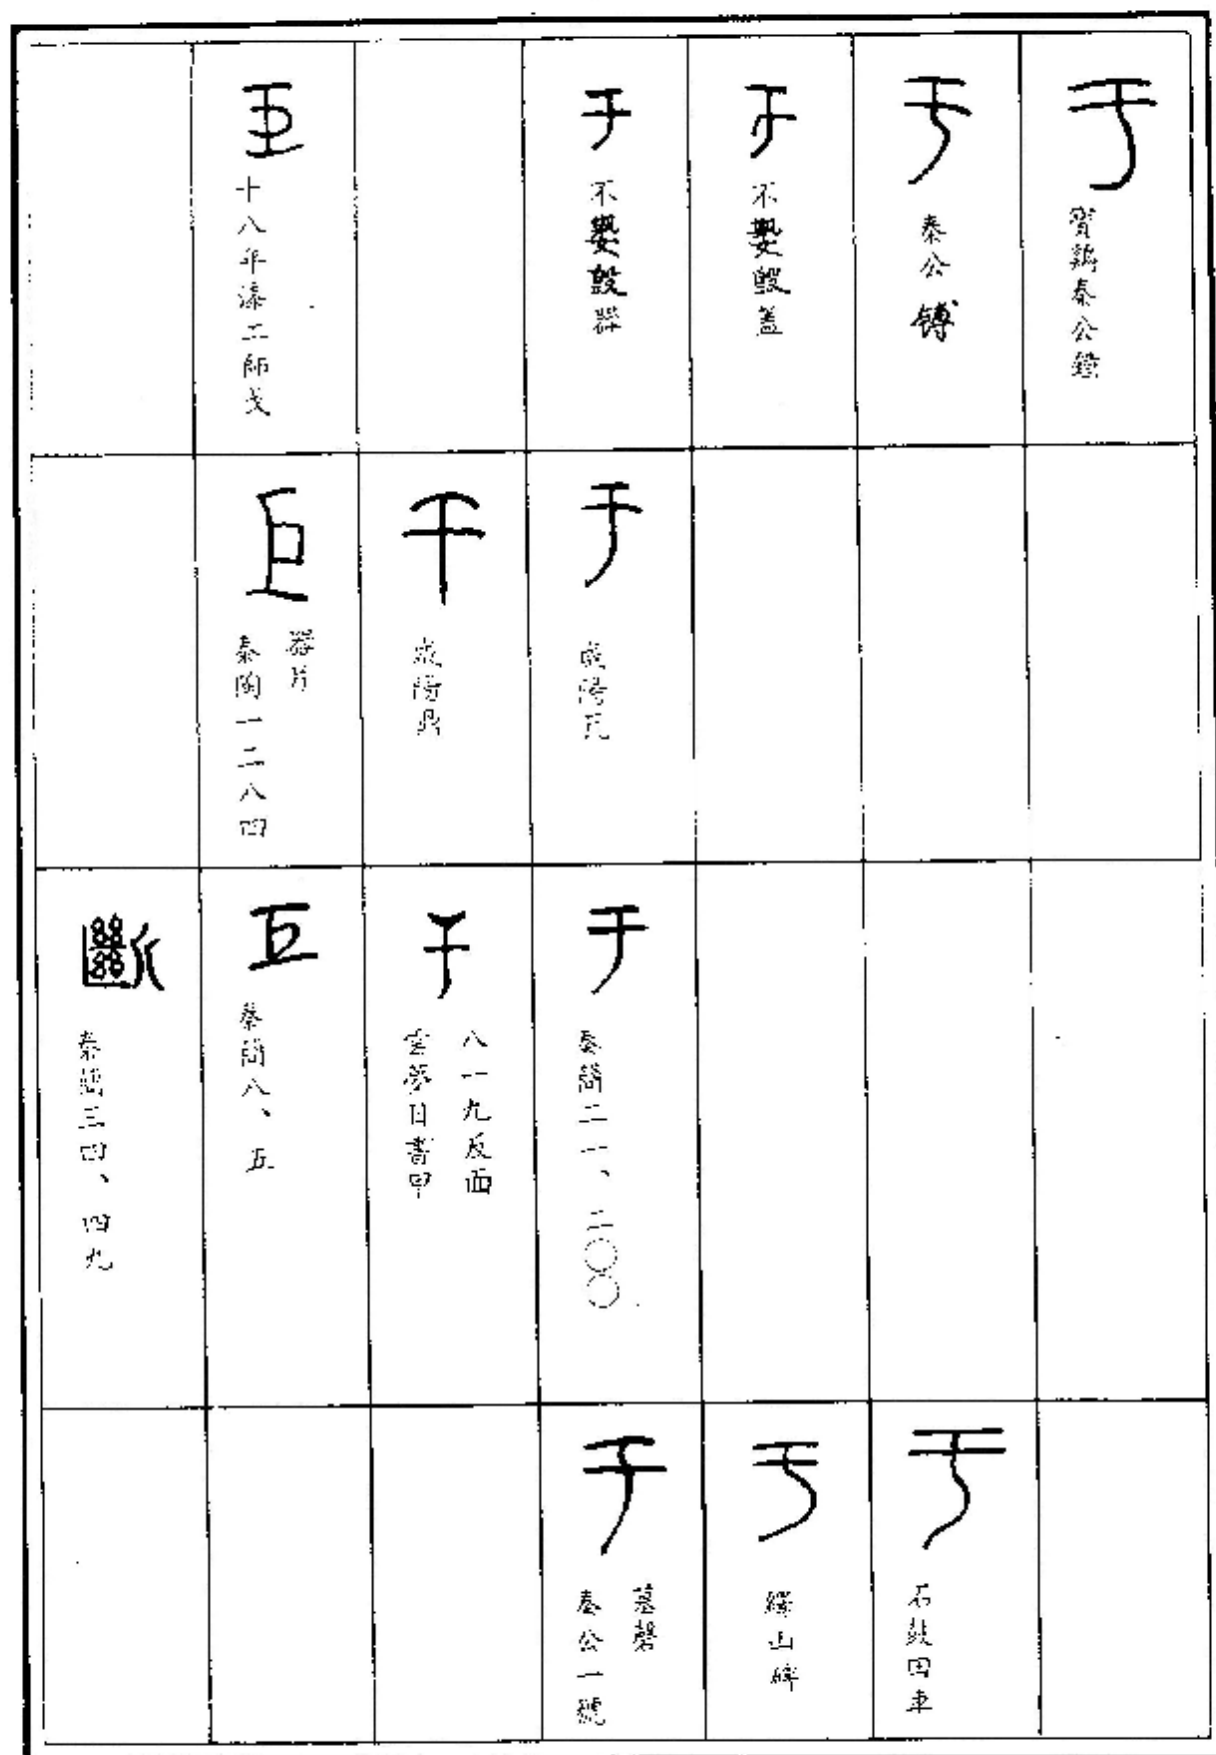 于
寶鷄秦公鐘
于
秦公鎛
于
不𡢁𣪘蓋
于
不𡢁𣪘器
巨
十八年漆工師戈
于
咸陽瓦
干
咸陽鼎
巨
秦陶一二八四
器片
于
秦簡二一、二〇〇
干
雲夢日書甲
八一九反面
巨
秦簡八、五
斷
秦簡三四、四九
于
石鼓田車
于
繹山碑
于
秦公一號
墓磬